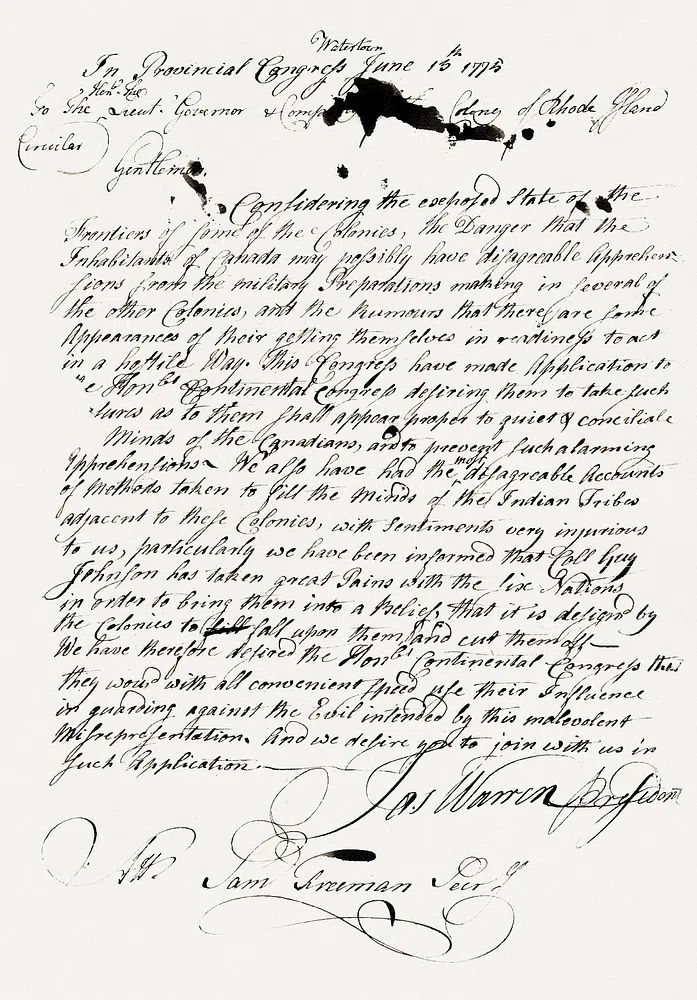 Watertown
In Provincial Congress June 13th 1775
Honl. the
To The Lieut. Governor & Company the Colony of Rhode Island
Circular
Gentlemen.
Considering the exposed State of the
Frontiers of some of the Colonies, the Danger that the
Inhabitants of Canada may possibly have disagreable Apprehen-
sions from the military Preparations making in several of
the other Colonies, and the Rumours that there are some
Appearances of their getting themselves in readiness to act
in a hostile Way. This Congress have made Application to
e Honbl Continental Congress desiring them to take such
sures as to them shall appear proper to quiet & conciliate
Minds of the Canadians, and to prevent such alarming
Apprehensions. We also have had the most disagreable Accounts
of Methods taken to fill the Minds of the Indian Tribes
adjacent to these Colonies, with Sentiments very injurious
to us, particularly we have been informed that Coll Guy
Johnson has taken great Pains with the six Nations
in order to bring them into a Belief, that it is design'd by
the Colonies to fall upon them and cut them off—
We have therefore desired the Honbl Continental Congress that
they woud with all convenient speed use their Influence
in guarding against the Evil intended by this malevolent
Misrepresentation. And we desire you to join with us in
such Application.—
Jas Warren President
Att. Saml Freeman Secry